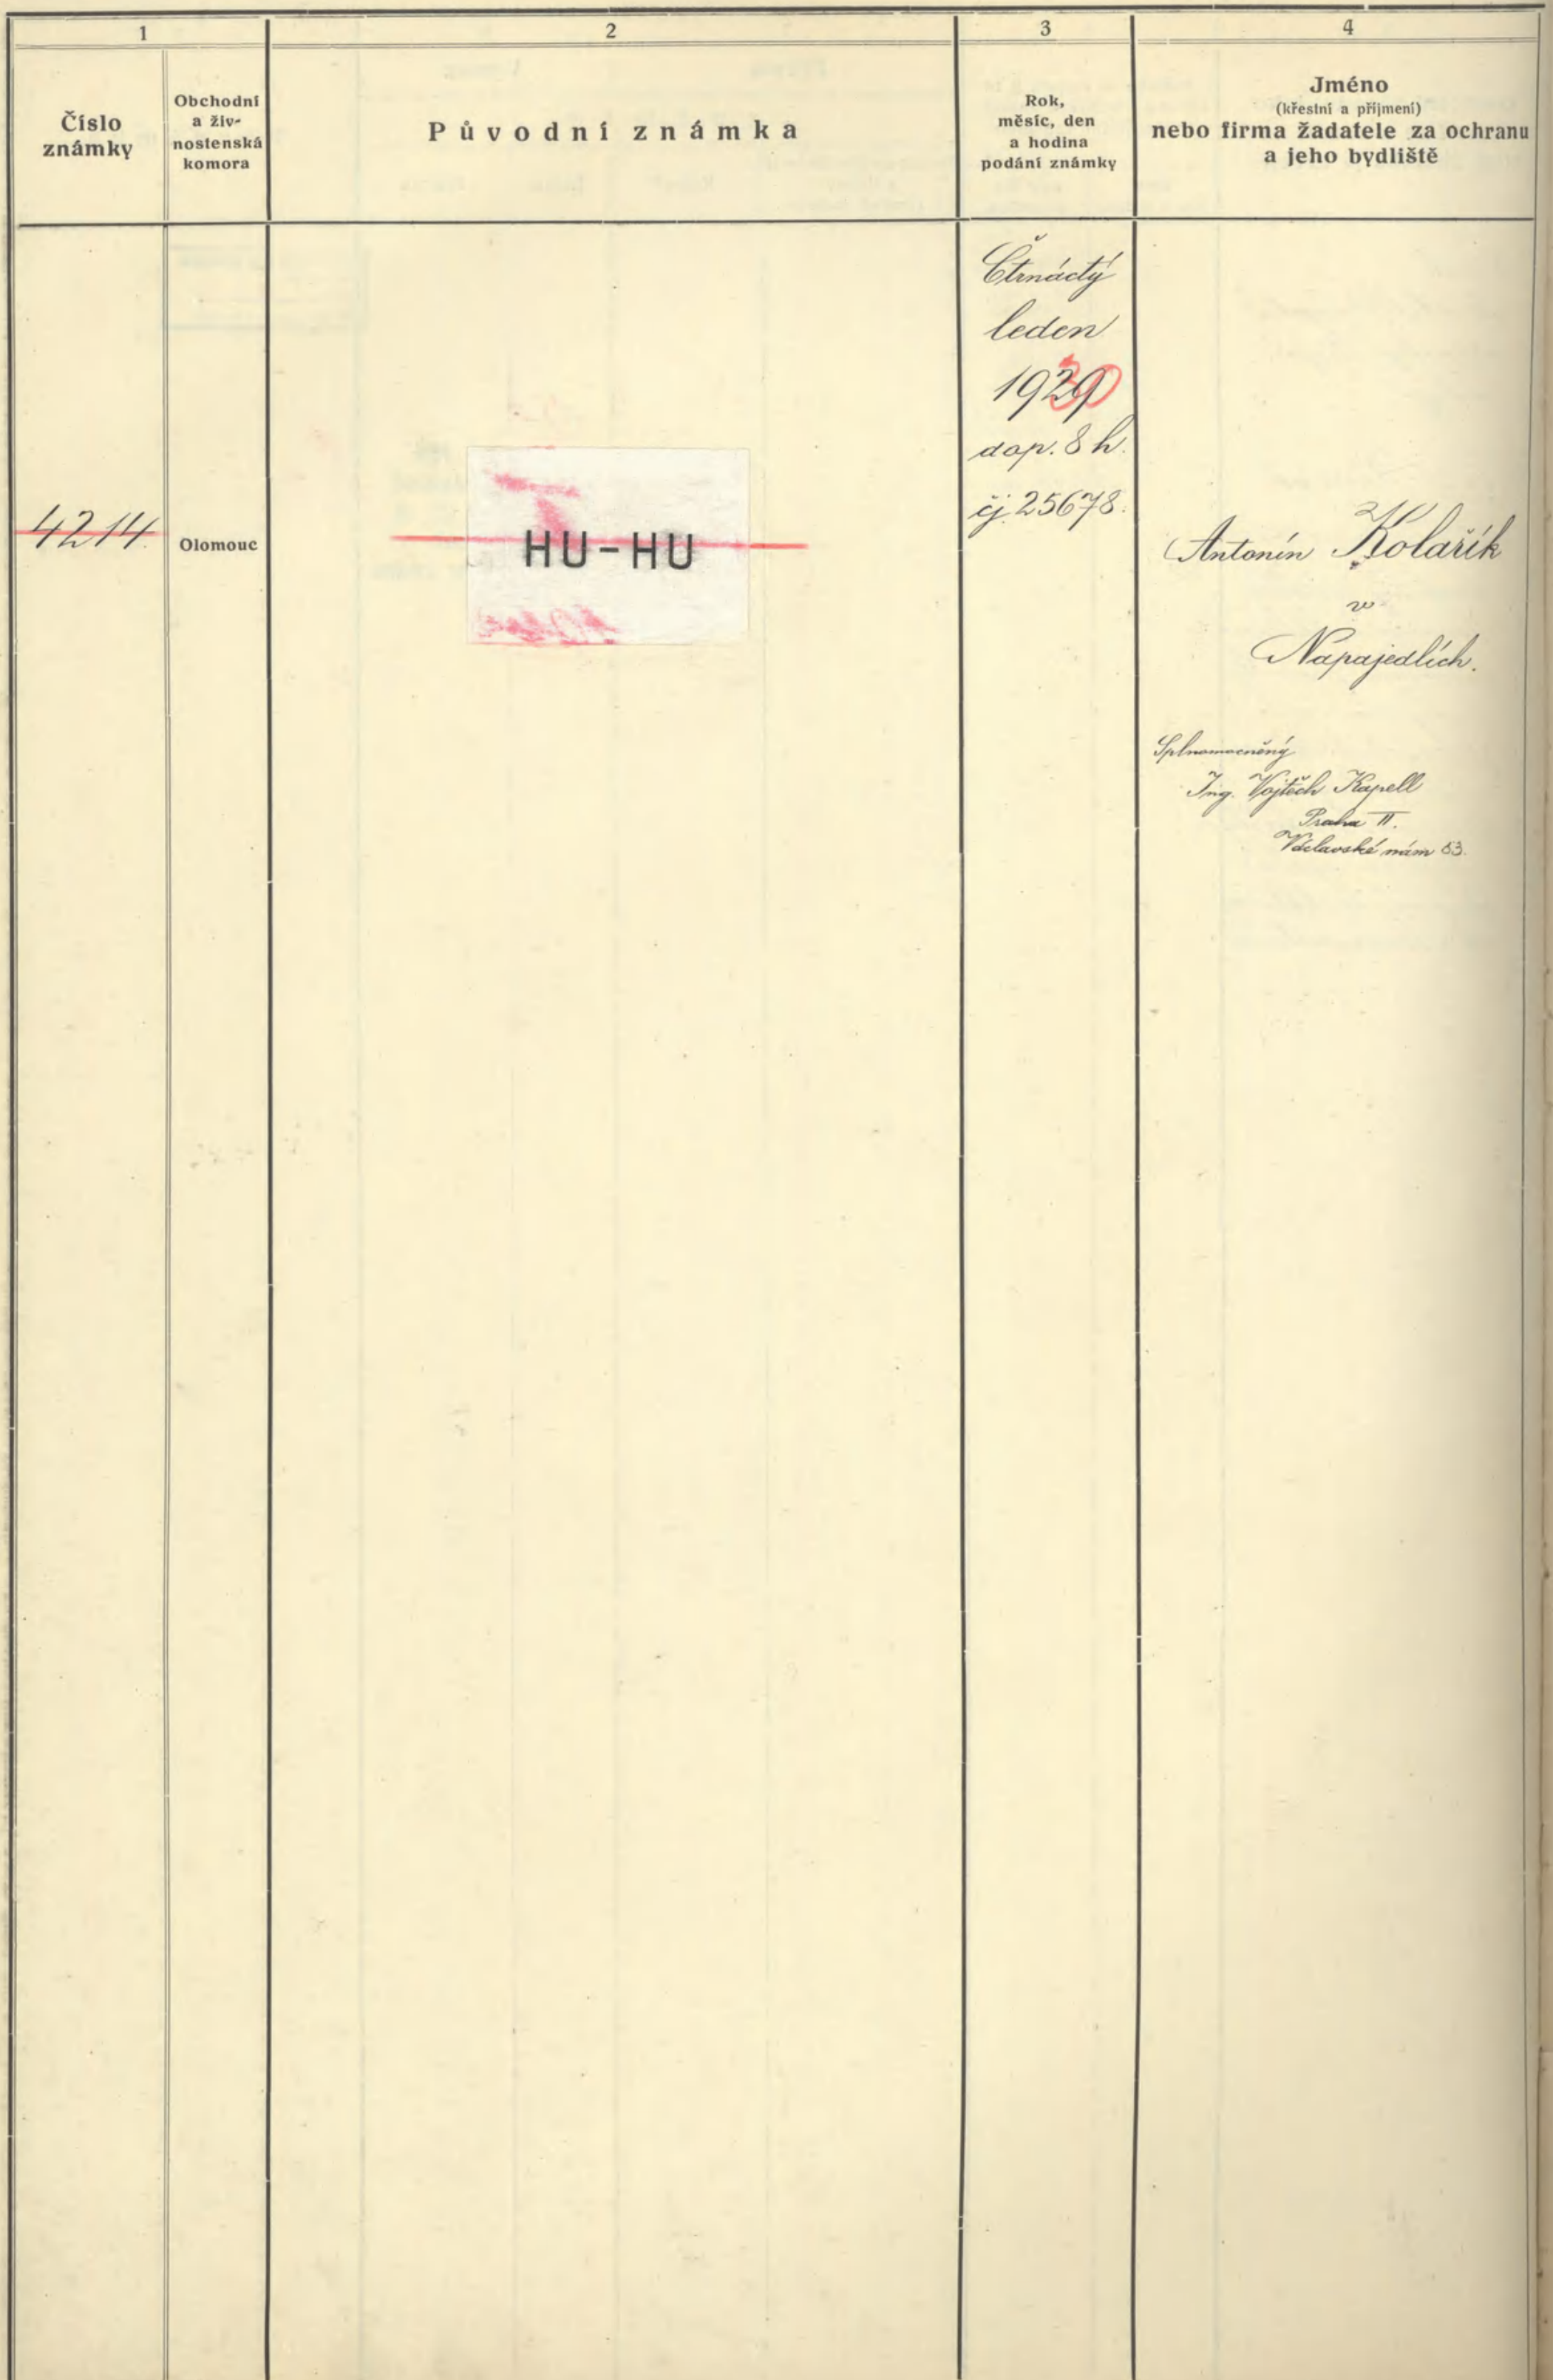 1
2
3
4
Číslo
známky
Obchodní
a živ-
nostenská
komora
Původní známka
Rok,
měsíc, den
a hodina
podání známky
Jméno
(křestní a příjmení)
nebo firma žadatele za ochranu
a jeho bydliště
4214.
Olomouc
HU-HU
Čtrnáctý
leden
1930
dop. 8 h.
čj. 25678.
Antonín Kolařík
v
Napajedlích.
Splnomocněný
Ing. Vojtěch Kapell
Praha II.
Václavské nám 53.